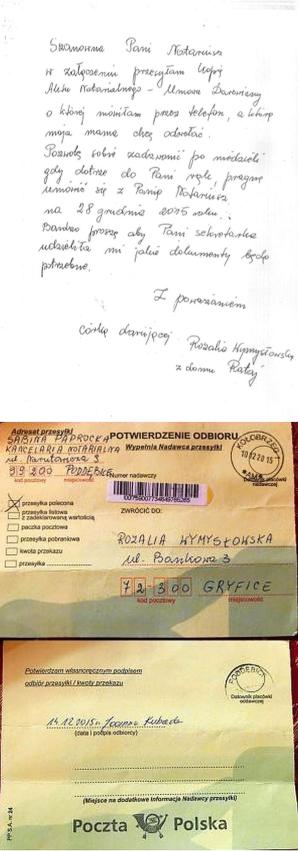 Szanowna Pani Notariusz
w załączeniu przesyłam kopię
Aktu Notarialnego - Umowa Darowizny
o której mówiłam przez telefon, a którą
moja mama chcę odwołać.
Pozwolę sobie zadzwonić po niedzieli
gdy dotrze do Pani rąk, pragnę
umówić się z Panią Notariusz
na 28 grudnia 2015 roku.
Bardzo proszę aby Pani sekretarka
udzieliła mi jakie dokumenty będą
potrzebne.
Z poważaniem
córka darującej Rozalia Wymysłowska
z domu Rataj
Adresat przesyłki
SABINA PAPROCKA
KANCELARIA NOTARIALNA
ul. Narutowicza 3
99 200 PODDĘBICE
kod pocztowy miejscowość
POTWIERDZENIE ODBIORU
Wypełnia Nadawca przesyłki
KOŁOBRZEG
10.12.20 15
Numer nadawczy
placówki nadawczej
przesyłka polecona
przesyłka listowa z zadeklarowaną wartością
paczka pocztowa
przesyłka pobraniowa
kwota przekazu
przesyłka
ZWRÓCIĆ DO:
ROZALIA WYMYSŁOWSKA
ul. Bankowa 3
72-300 GRYFICE
kod pocztowy miejscowość
Potwierdzam własnoręcznym podpisem
odbiór przesyłki / kwoty przekazu
PODDĘBICE
Datownik placówki
oddawczej
14.12.2015r Joanna
(data i podpis odbiorcy)
(Miejsce na dodatkowe informacje Nadawcy przesyłki)
PP S.A. nr 24
Poczta Polska